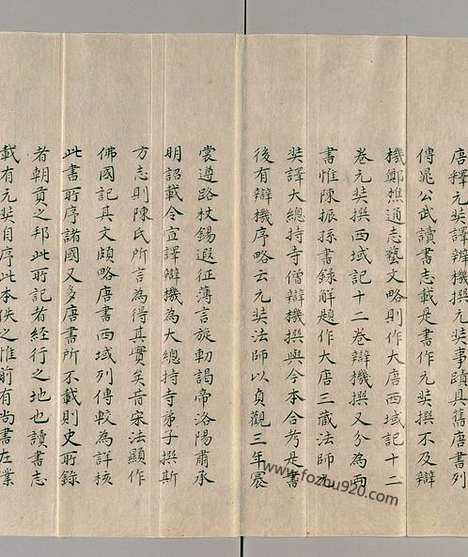 唐釋元奘撰元奘事蹟具舊唐書列
傳晁公武讀書志載是書作元奘撰不及辯
機鄭樵通志藝文略則作大唐西域記十二
卷元奘撰西域記十二卷辯機撰又分為兩
書惟陳振孫書錄解題作大唐三藏法師元
奘譯大總持寺僧辯機撰與今本合考是書
後有辯機序略云元奘法師以貞觀三年褰
裳遵路杖錫遐征薄言旋軔謁帝洛陽肅承
明詔載令宣譯辯機為大總持寺弟子撰斯
方志則陳氏所言為得其實矣昔宋法顯作
佛國記其文頗略唐書西域列傳較為詳核
此書所序諸國又多唐書所不載則史所錄
者朝貢之邦此所記者經行之地也讀書志
載有元奘自序此本佚之惟前有尚書左業
www.fozhu920.com